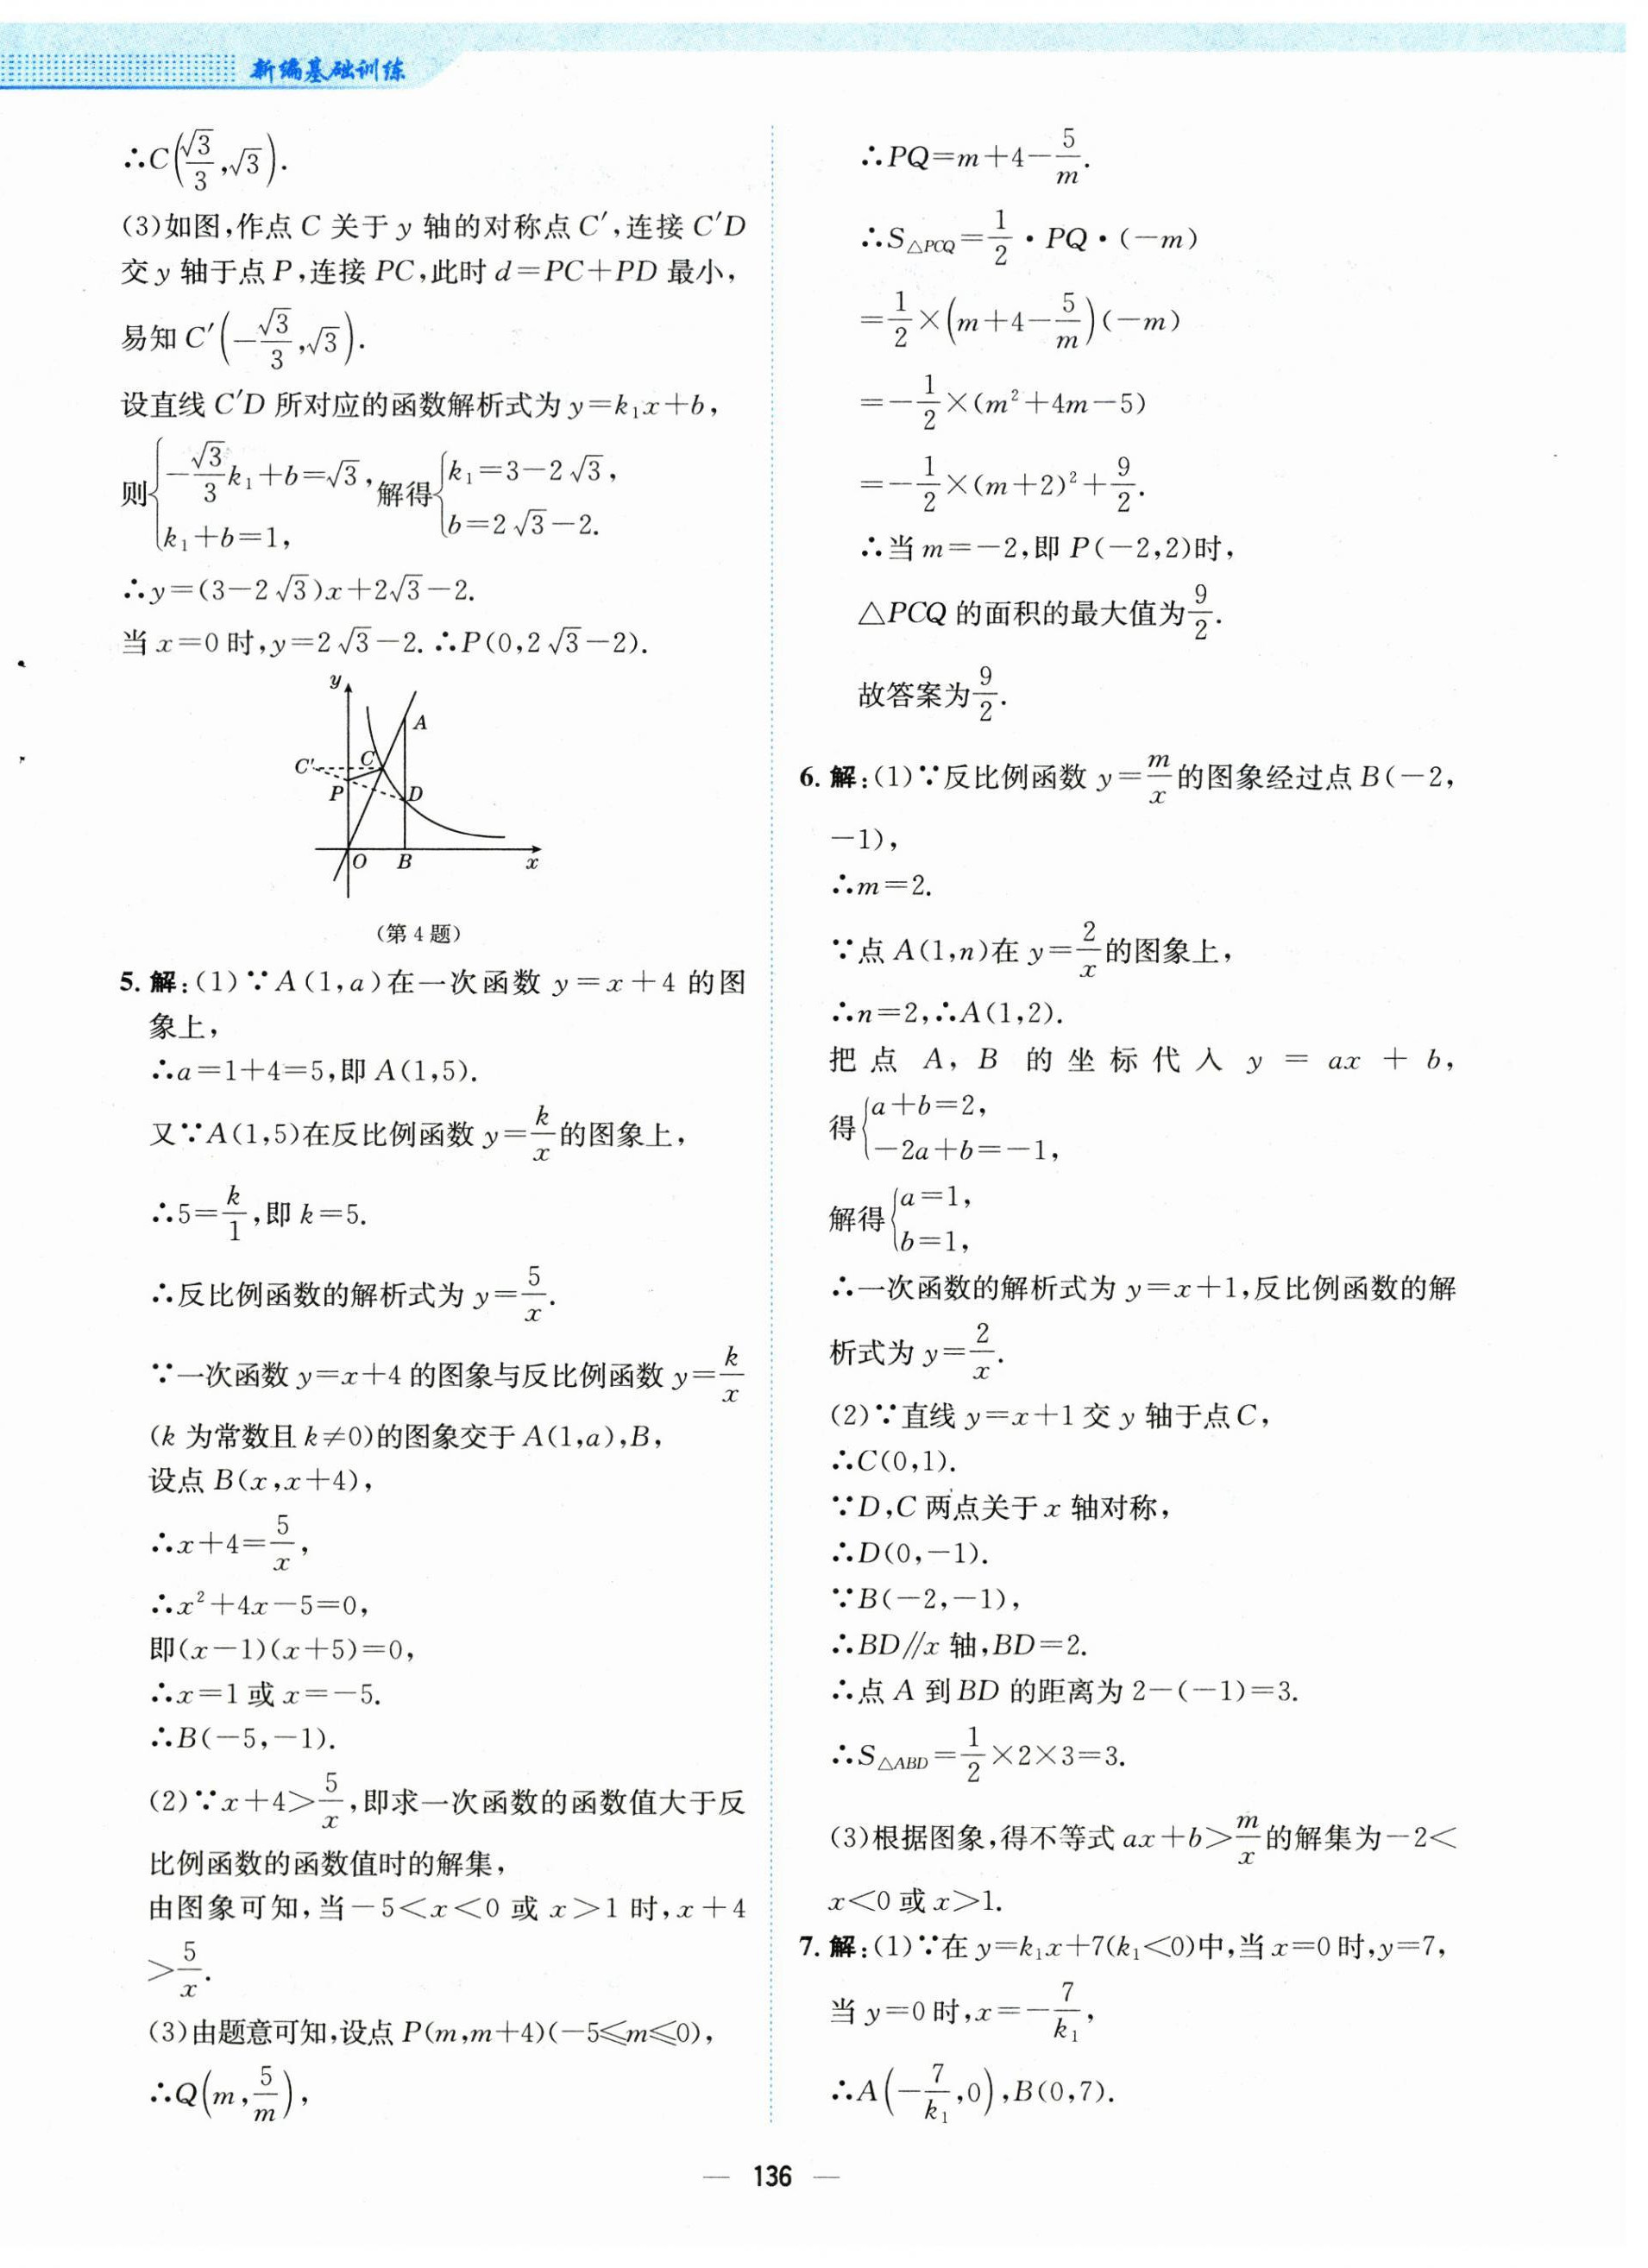 新编基础训练
∴C(√3/3,√3).
(3)如图,作点 C 关于 y 轴的对称点 C′,连接 C′D
交 y 轴于点 P,连接 PC,此时 d=PC+PD 最小,
易知 C′(-√3/3,√3).
设直线 C′D 所对应的函数解析式为 y=k₁x+b,
则{-√3/3k₁+b=√3, k₁+b=1, 解得{k₁=3-2√3, b=2√3-2.
∴y=(3-2√3)x+2√3-2.
当 x=0 时,y=2√3-2. ∴P(0,2√3-2).
y
A
C′
C
P
D
O
B
x
(第 4 题)
5. 解:(1)∵A(1,a)在一次函数 y=x+4 的图
象上,
∴a=1+4=5,即 A(1,5).
又∵A(1,5)在反比例函数 y=k/x的图象上,
∴5=k/1,即 k=5.
∴反比例函数的解析式为 y=5/x.
∵一次函数 y=x+4 的图象与反比例函数 y=k/x
(k 为常数且 k≠0)的图象交于 A(1,a),B,
设点 B(x,x+4),
∴x+4=5/x,
∴x²+4x-5=0,
即(x-1)(x+5)=0,
∴x=1 或 x=-5.
∴B(-5,-1).
(2)∵x+4>5/x,即求一次函数的函数值大于反
比例函数的函数值时的解集,
由图象可知,当-5<x<0 或 x>1 时,x+4
>5/x.
(3)由题意可知,设点 P(m,m+4)(-5⩽m⩽0),
∴Q(m,5/m),
∴PQ=m+4-5/m.
∴S△PCQ=1/2·PQ·(-m)
=1/2×(m+4-5/m)(-m)
=-1/2×(m²+4m-5)
=-1/2×(m+2)²+9/2.
∴当 m=-2,即 P(-2,2)时,
△PCQ 的面积的最大值为9/2.
故答案为9/2.
6. 解:(1)∵反比例函数 y=m/x的图象经过点 B(-2,
-1),
∴m=2.
∵点 A(1,n)在 y=2/x的图象上,
∴n=2,∴A(1,2).
把点 A,B 的坐标代入 y=ax+b,
得{a+b=2, -2a+b=-1,
解得{a=1, b=1,
∴一次函数的解析式为 y=x+1,反比例函数的解
析式为 y=2/x.
(2)∵直线 y=x+1 交 y 轴于点 C,
∴C(0,1).
∵D,C 两点关于 x 轴对称,
∴D(0,-1).
∵B(-2,-1),
∴BD∥x 轴,BD=2.
∴点 A 到 BD 的距离为 2-(-1)=3.
∴S△ABD=1/2×2×3=3.
(3)根据图象,得不等式 ax+b>m/x的解集为-2<
x<0 或 x>1.
7. 解:(1)∵在 y=k₁x+7(k₁<0)中,当 x=0 时,y=7,
当 y=0 时,x=-7/k₁,
∴A(-7/k₁,0),B(0,7).
— 136 —